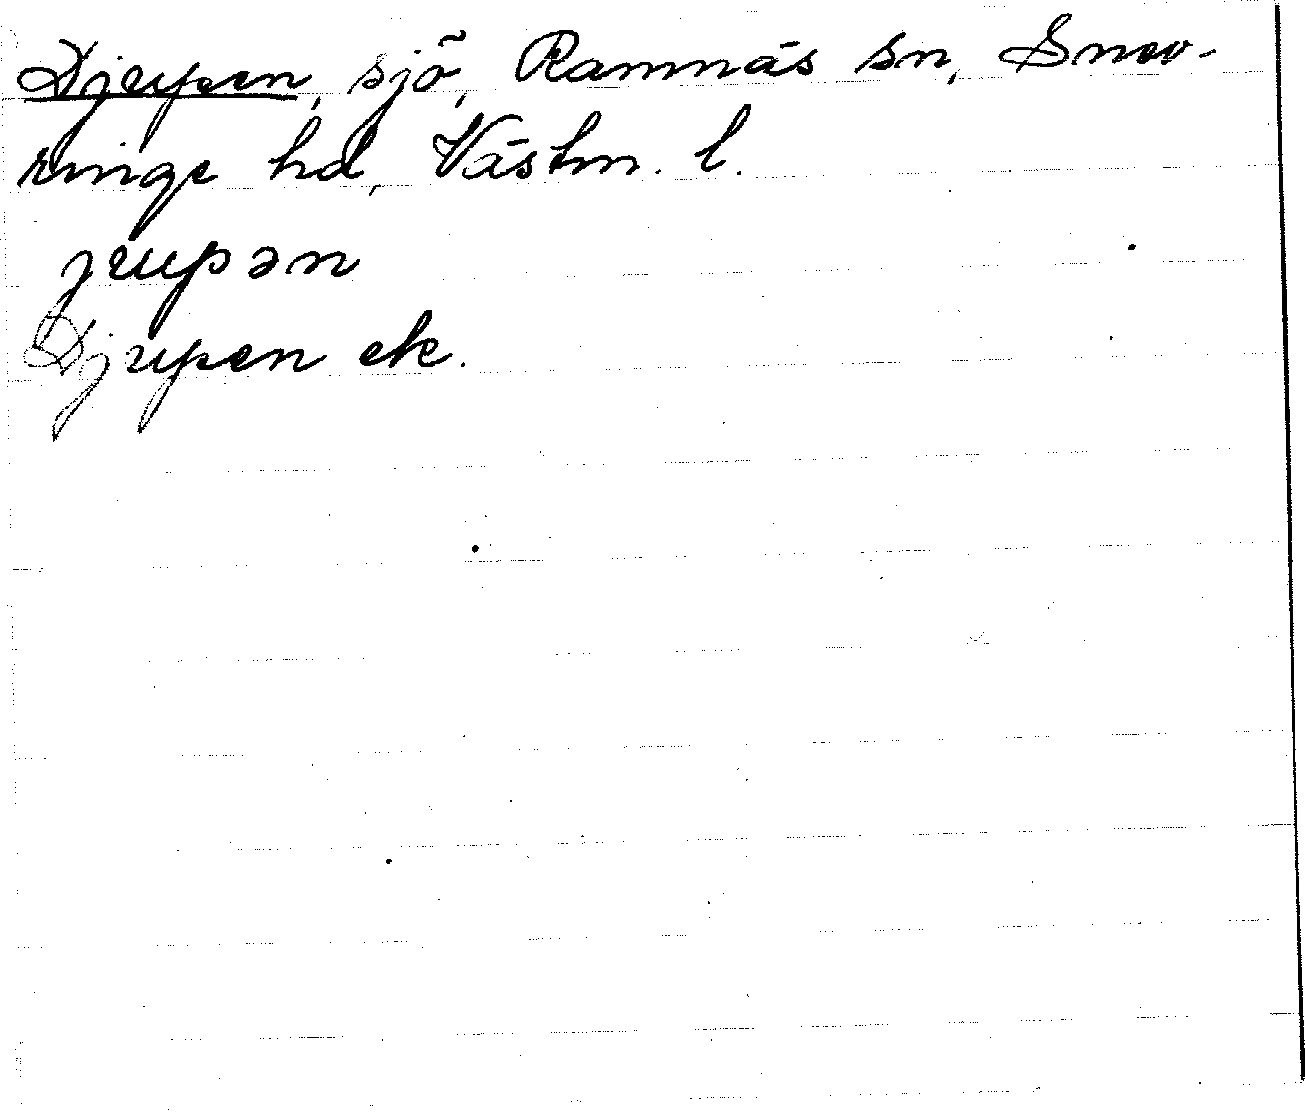 Djupen, sjö, Ramnäs sn, Snev-
ringe hd, Västm. l.
jupən
Djupen ek.